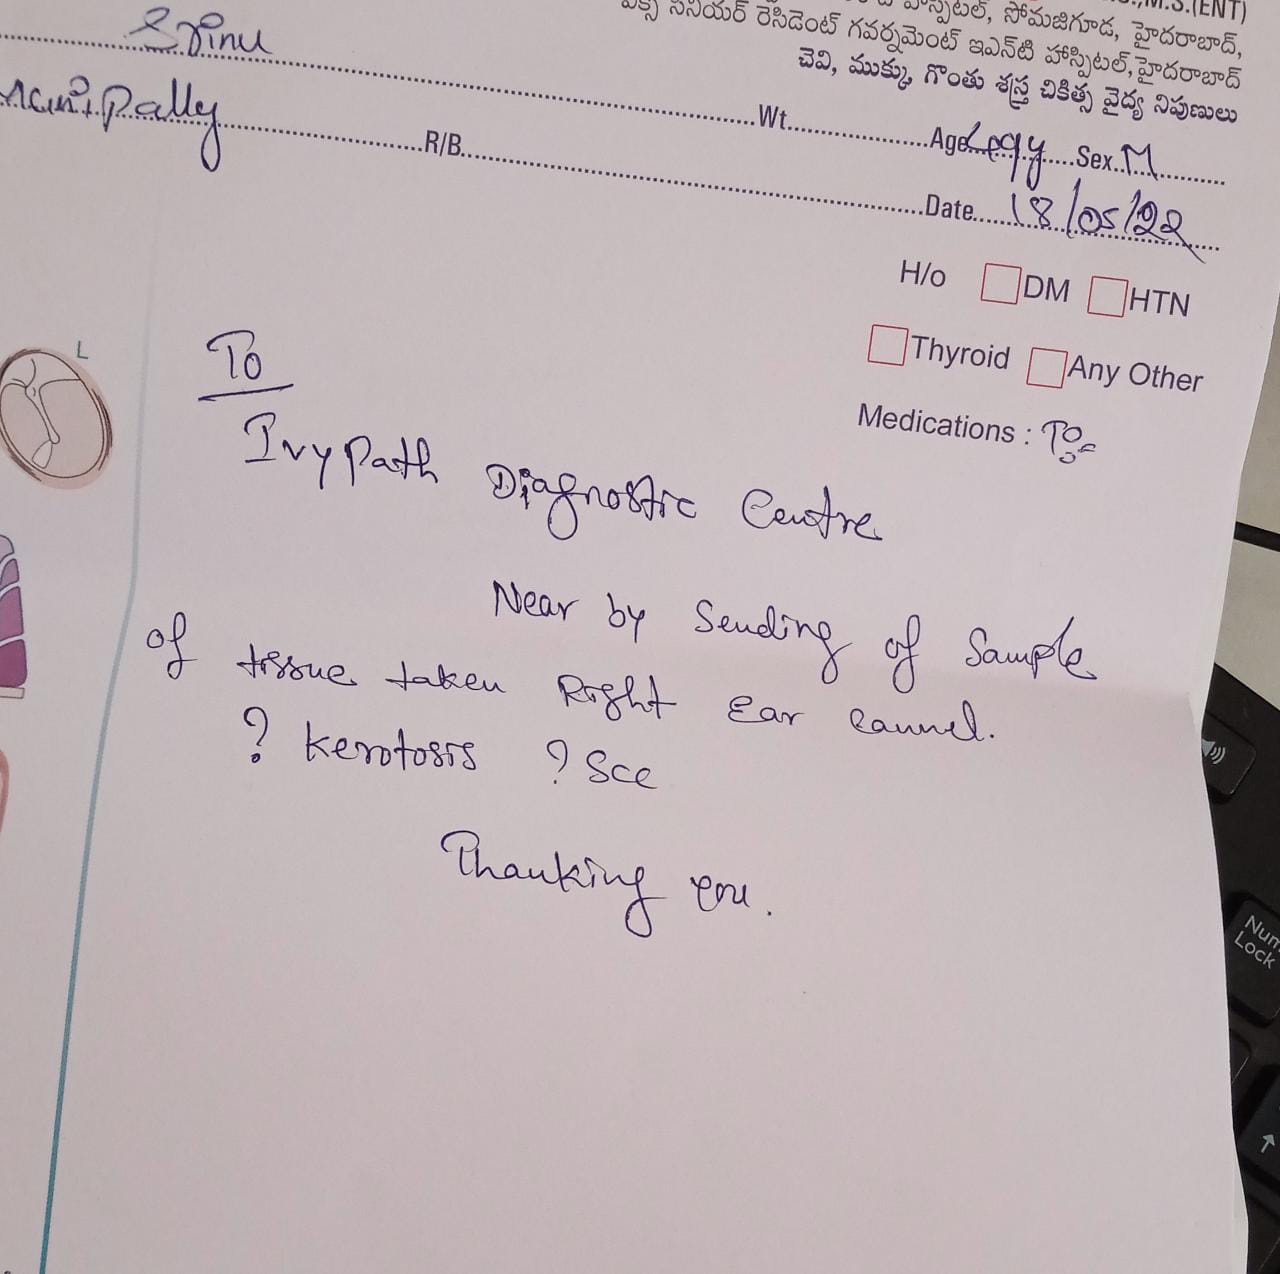 M.S.(ENT)
హాస్పిటల్, సోమజిగూడ, హైదరాబాద్,
ఎక్స్ సీనియర్ రెసిడెంట్ గవర్నమెంట్ ఇఎన్‌టి హాస్పిటల్, హైదరాబాద్
చెవి, ముక్కు, గొంతు శస్త్ర చికిత్స వైద్య నిపుణులు
Srinu Wt. Age Sex. M
Pally R/B. Date. 18/05/22
H/o DM HTN
Thyroid Any Other
Medications :
L
To
Ivy Path Diagnostic Centre
Near by Sending of Sample
of tissue taken Right Ear cannel.
? kerotosis ? Scc
Thanking you.
Num
Lock